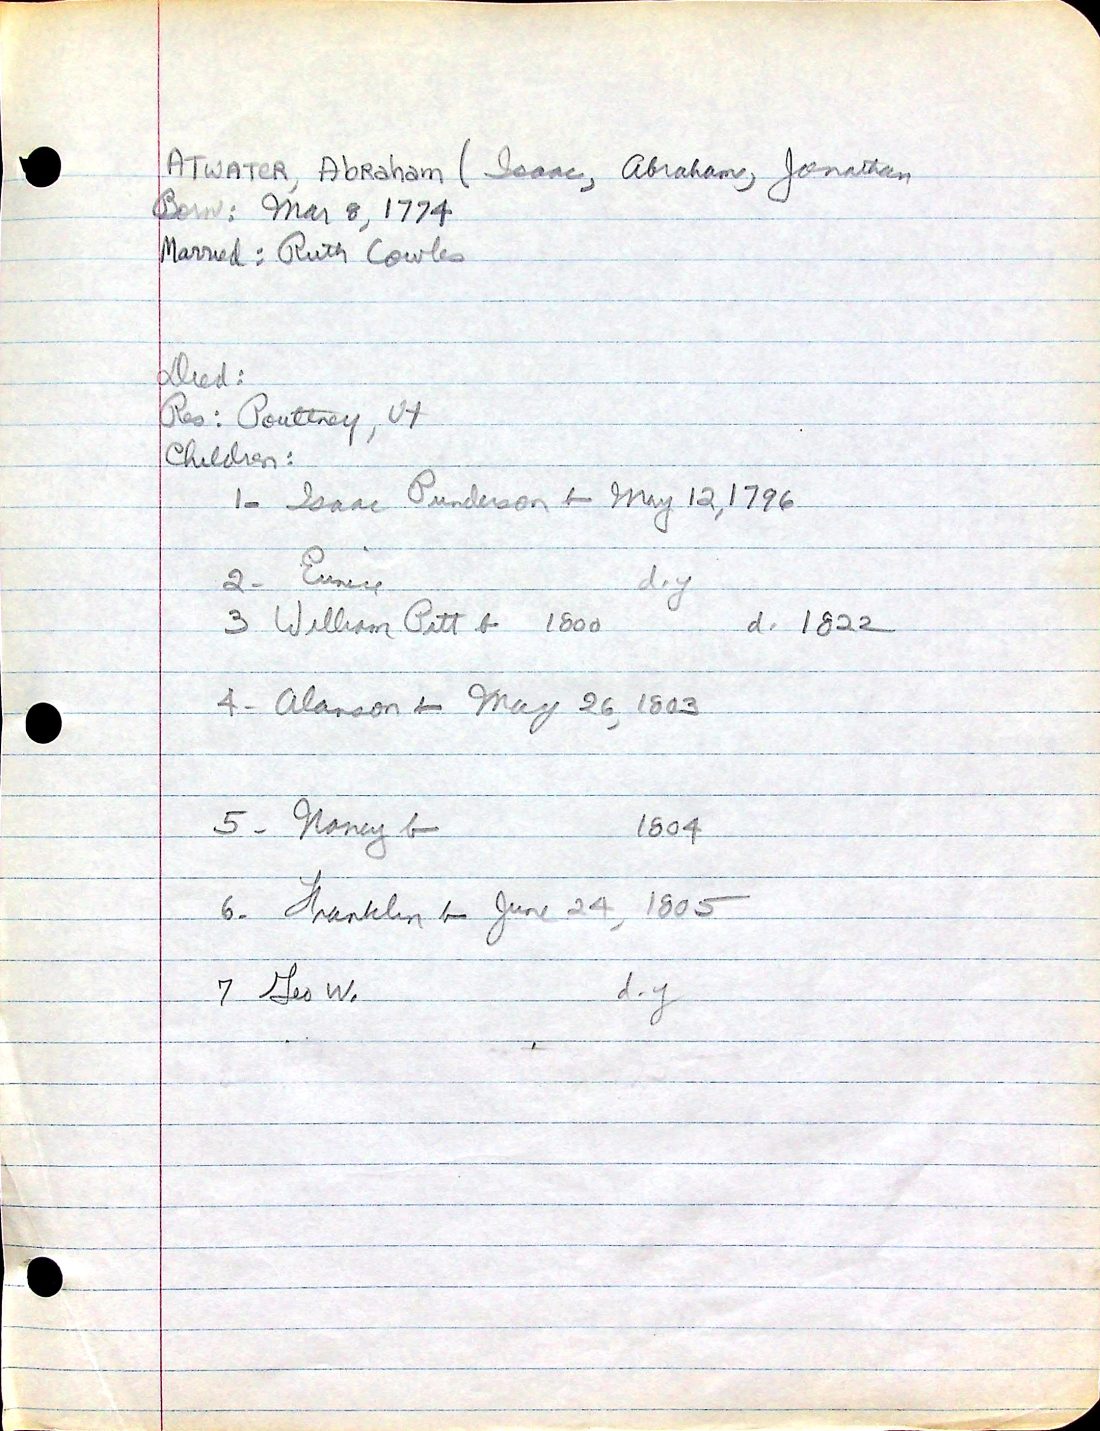 ATWATER, Abraham ( Isaac, Abraham, Jonathan
Born: Mar 8, 1774
Married: Ruth Cowles
Died:
Res: Poultney, Vt
Children:
1- Isaac Punderson b May 12, 1796
2- Eunice d.y
3 William Pitt b 1800 d. 1822
4- Alanson b May 26, 1803
5- Nancy b 1804
6- Franklin b June 24, 1805
7 Geo W. d.y